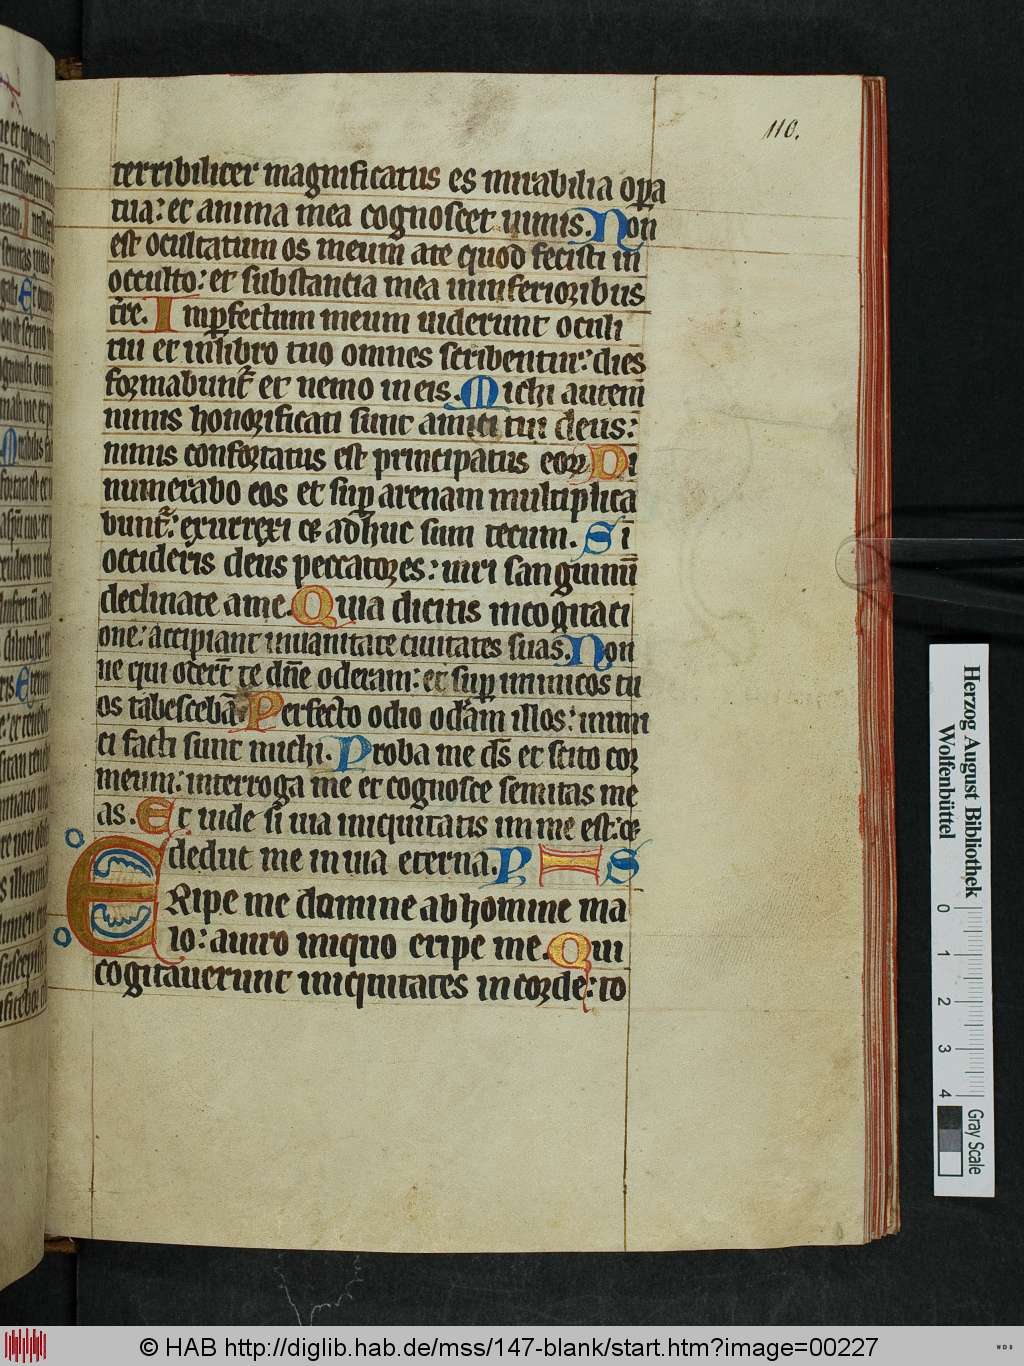 110.
terribiliter magnificatus es mirabilia opa
tua: et anima mea cognoscet nimis. Non
est occultatum os meum a te quod fecisti in
occulto: et substantia mea in inferioribus
tre. Inpfectum meum uiderunt oculi
tui et in libro tuo omnes scribentur: dies
formabunt̉ et nemo in eis. Michi autem
nimis honorificati sunt amici tui deus:
nimis confortatus est principatus eoꝝ Di
numerabo eos et sup arenam multiplica
bunt̉: exurrexi et adhuc sum tecum. Si
occideris deus peccatores: uiri sanguinū
declinate a me. Quia dicitis in cogitaci
one: accipiant in uanitate ciuitates suas. Non
ne qui oderūt te dn̄e oderam: et sup inimicos tu
os tabescebā. Perfecto odio odām illos: inimi
ci facti sunt michi. Proba me ds̄ et scito cor
meum: interroga me et cognosce semitas me
as. Et uide si uia iniquitatis in me est: et
deduc me in uia eterna. P S
ERipe me domine ab homine ma
lo: a uiro iniquo eripe me. Qui
cogitauerunt iniquitates in corde: to
Herzog August Bibliothek
Wolfenbüttel
0 1 2 3 4
Gray Scale
© HAB http://diglib.hab.de/mss/147-blank/start.htm?image=00227